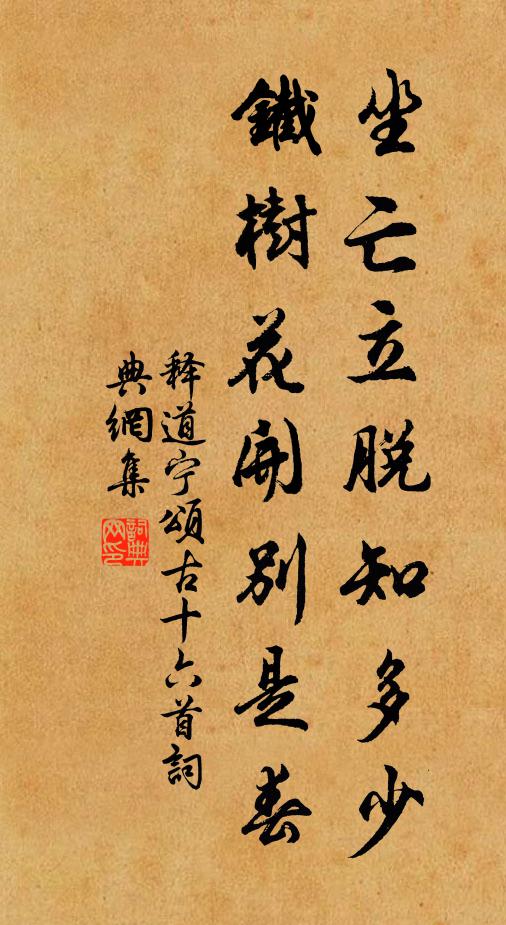 坐亡立脱知多少
鐵樹花開別是春
释道宁頌古十六首詞
典網集
詞典网印